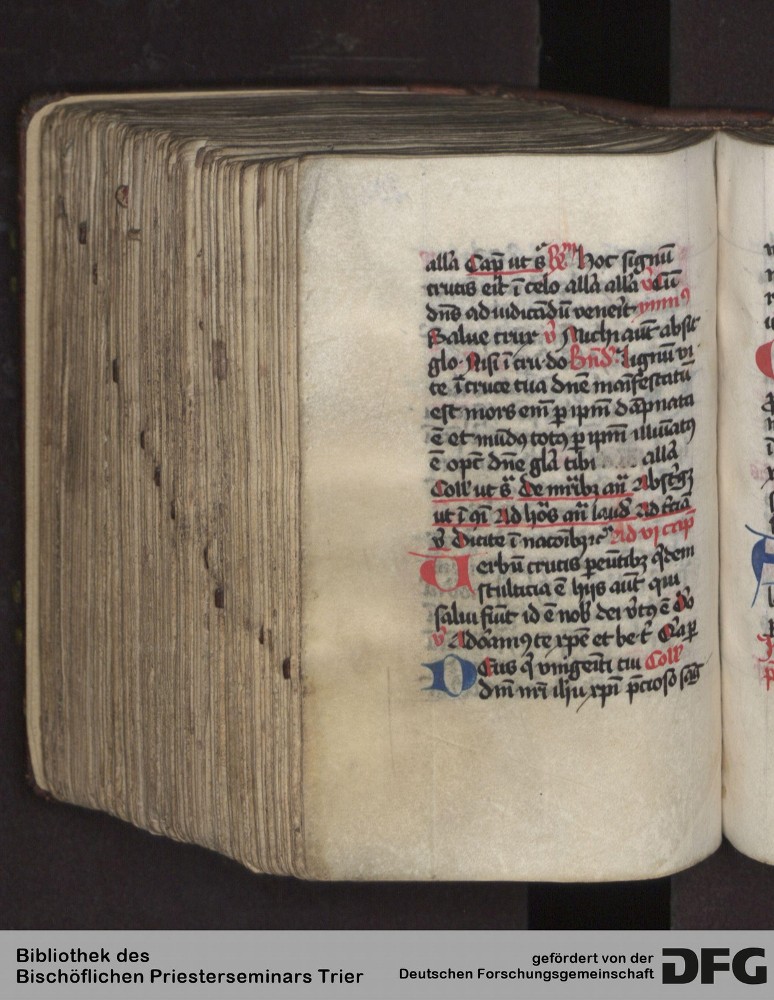 alła Cap̄ ut s̄ R̄m Hoc signū
crucis erit ī celo alła alła v̄ Cū
dn̄s ad iudicādū venerit ymn9
Salue crux v̄ Michi aūt absit
glo Nisi ī cru do Bn̄d Lignū vi
te ī cruce tua dn̄e manifestatū
est mors em̄ p ipm̄ dāpnata
ē et mūd9 tot9 p ipm̄ illūīatꝰ
ē opt̄ dn̄e gła tibi alła
Coll̄ ut s̄ De mr̄ibꝫ an̄
ut ī Ad ho̅s an̄ laud̄ Ad
v̄ Dicite ī nacoībꝫ Ad
Uerbū crucis peūtibꝫ qⁱdem
stulticia ē hijs aūt qui
salui fiūt id ē nob dei v̄t9 ē
v̄ Adoram9 te xp̄e et be t̄
Deus qⁱ vnigeīti tui Coll̄
dn̄i nr̄i ih̄u xp̄i p̄cioso
Bibliothek des
Bischöflichen Priesterseminars Trier
gefördert von der
Deutschen Forschungsgemeinschaft DFG